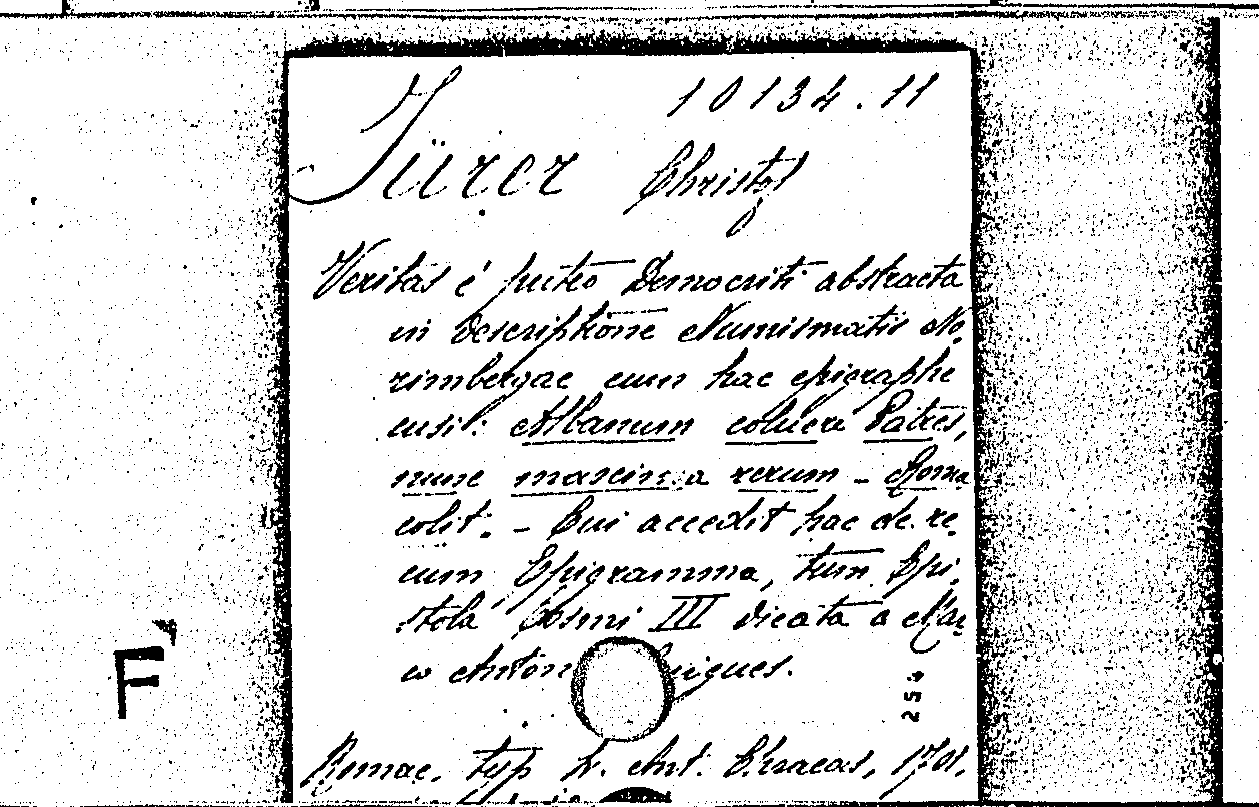 10134.11
Fürer Christof
Veritas é puteo Democriti abstracta
in descriptione Numismatis No-
rimbergae cum hac epigraphe
cusi: Albanum coluere Patres,
nunc maxima rerum - Roma
colit. - Cui accedit hac de re
cum Epigramma, tum Epi-
stola Cosmi III dicata a Mar
co Anton
Romae, typ h. Ant. Chracas, 1701.
254
F